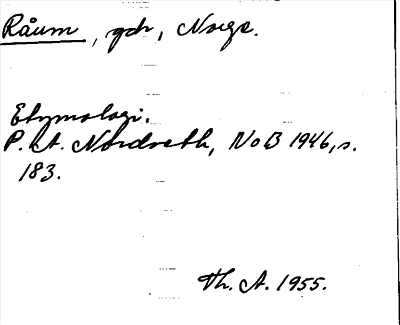 Råum, gdr, Norge.
Etymologi.
P. A. Nordseth, NoB 1946, s.
183.
Th. A. 1955.